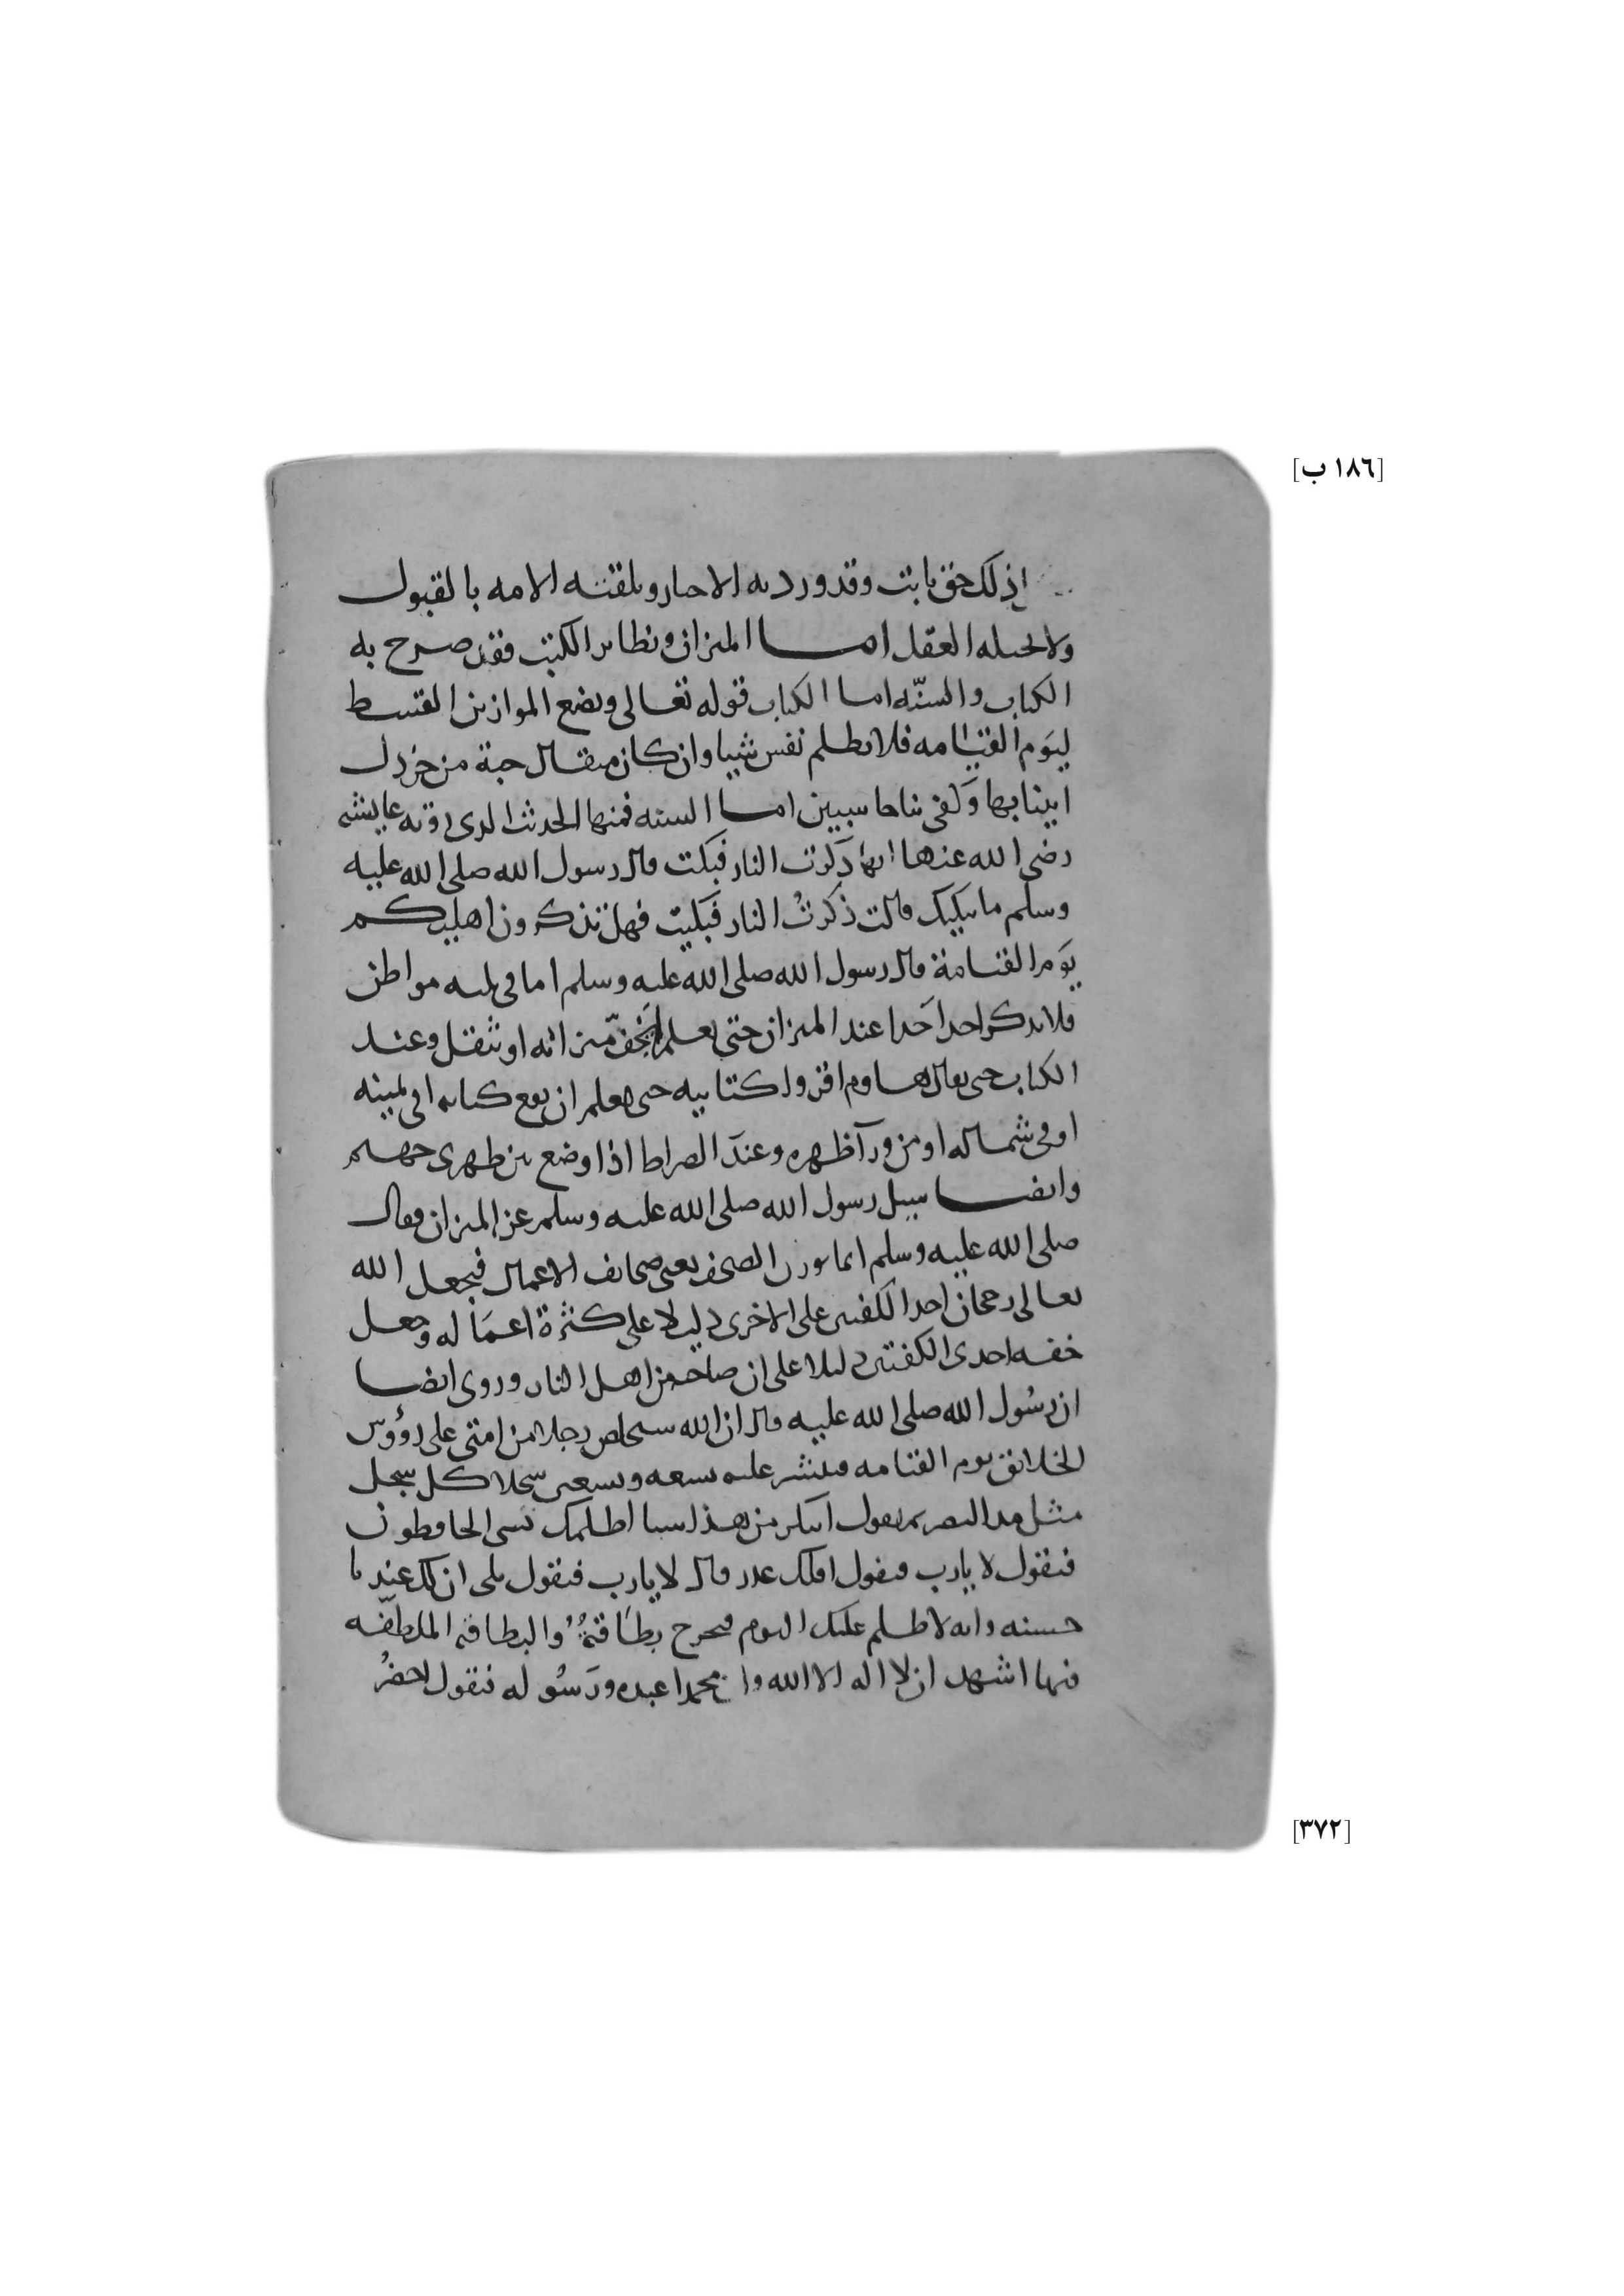 [١٨٦ ب]
ذلك حق ثابت وقد ورد به الاخبار وتلقته الامه بالقبول
ولا يحيله العقل اما الميزان وتطاير الكتب فقد صرح به
الكتاب والسنّه اما الكتاب قوله تعالى ونضع الموازين القسط
ليَوم القيامه فلا تظلم نفس شيا وان كان مثقال حبة من خردل
اتينا بها وكفى بنا حاسبين اما السنه فمنها الحديث الذى روته عايشه
رضى الله عنها انها ذكرت النار فبكت قال رسول الله صلى الله عليه
وسلم ما يبكيك قالت ذكرتُ النار فبكيت فهل تذكرون اهليكم
يَوم القيامة قال رسول الله صلى الله عليه وسلم اما فى ثلثه مواطن
فلا يذكر احد احَدا عند الميزان حتى يعلم ايخفّ ميزانه او تثقل وعند
الكتاب حتى يقال هاوم اقروا كتابيه حتى يعلم ان يقع كتابه افى يمينه
او فى شماله او من ورآ ظهره وعندَ الصراط اذا وضع بين ظهرى جهنم
وايضا سيل رسول الله صلى الله عليه وسلم عن الميزان فقال
صلى الله عليه وسلم انما توزن الصحف يعنى صحائف الاعمال فيجعل الله
تعالى رجحان احد الكفتين على الاخرى دليلا على كثرة اعمَاله وجعل
خفه احدى الكفتين دليلا على ان صاحبه من اهل النار وروى ايضا
ان رسُول الله صلى الله عليه قال ان الله سيخلص رجلا من امتى على رؤوس
الخلائق يوم القيامه فينشر عليه تسعه وتسعين سجلا كل سجل
مثل مد البصر ثم يقول اتنكر من هذا شيا اظلمك كتبتى الحافظون
فيقول لا يارب فيقول افلك عذر قال لا يارب فيقول بلى ان لك عندنا
حسنه وانه لا ظلم عليك اليوم فيخرج بطَاقةٌ والبطاقه الملطّفه
فيها اشهد ان لا اله الا الله وان محمدا عبده ورَسُوله فيقول احضُر
[٣٧٢]